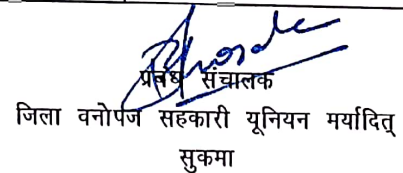 प्रबंध संचालक
जिला वनोपज सहकारी यूनियन मर्यादित्
सुकमा